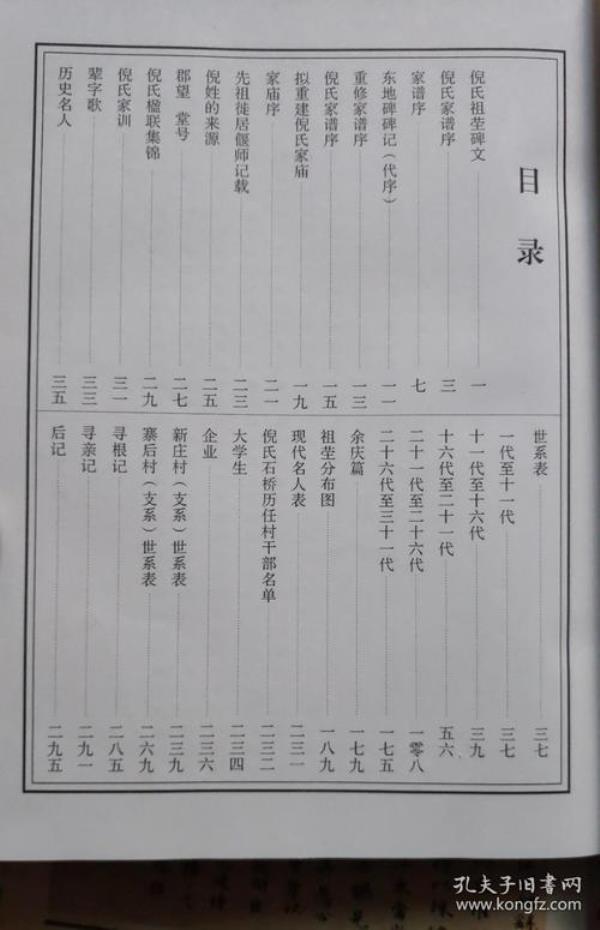 目录
倪氏祖茔碑文 一
倪氏家谱序 三
家谱序 七
东地碑碑记（代序） 一一
重修家谱序 一三
倪氏家谱序 一五
拟重建倪氏家庙 一九
家庙序 二一
先祖徙居偃师记载 二三
倪姓的来源 二五
郡望 堂号 二七
倪氏楹联集锦 二九
倪氏家训 三一
辈字歌 三三
历史名人 三五
世系表 三七
一代至十一代 三七
十一代至十六代 三九
十六代至二十一代 五六
二十一代至二十六代 一零八
二十六代至三十一代 一七五
余庆篇 一七九
祖茔分布图 一八九
现代名人表 二三一
倪氏石桥历任村干部名单 二三二
大学生 二三四
企业 二三六
新庄村（支系）世系表 二三九
寨后村（支系）世系表 二六九
寻根记 二八五
寻亲记 二九一
后记 二九五
孔夫子旧书网
www.kongfz.com